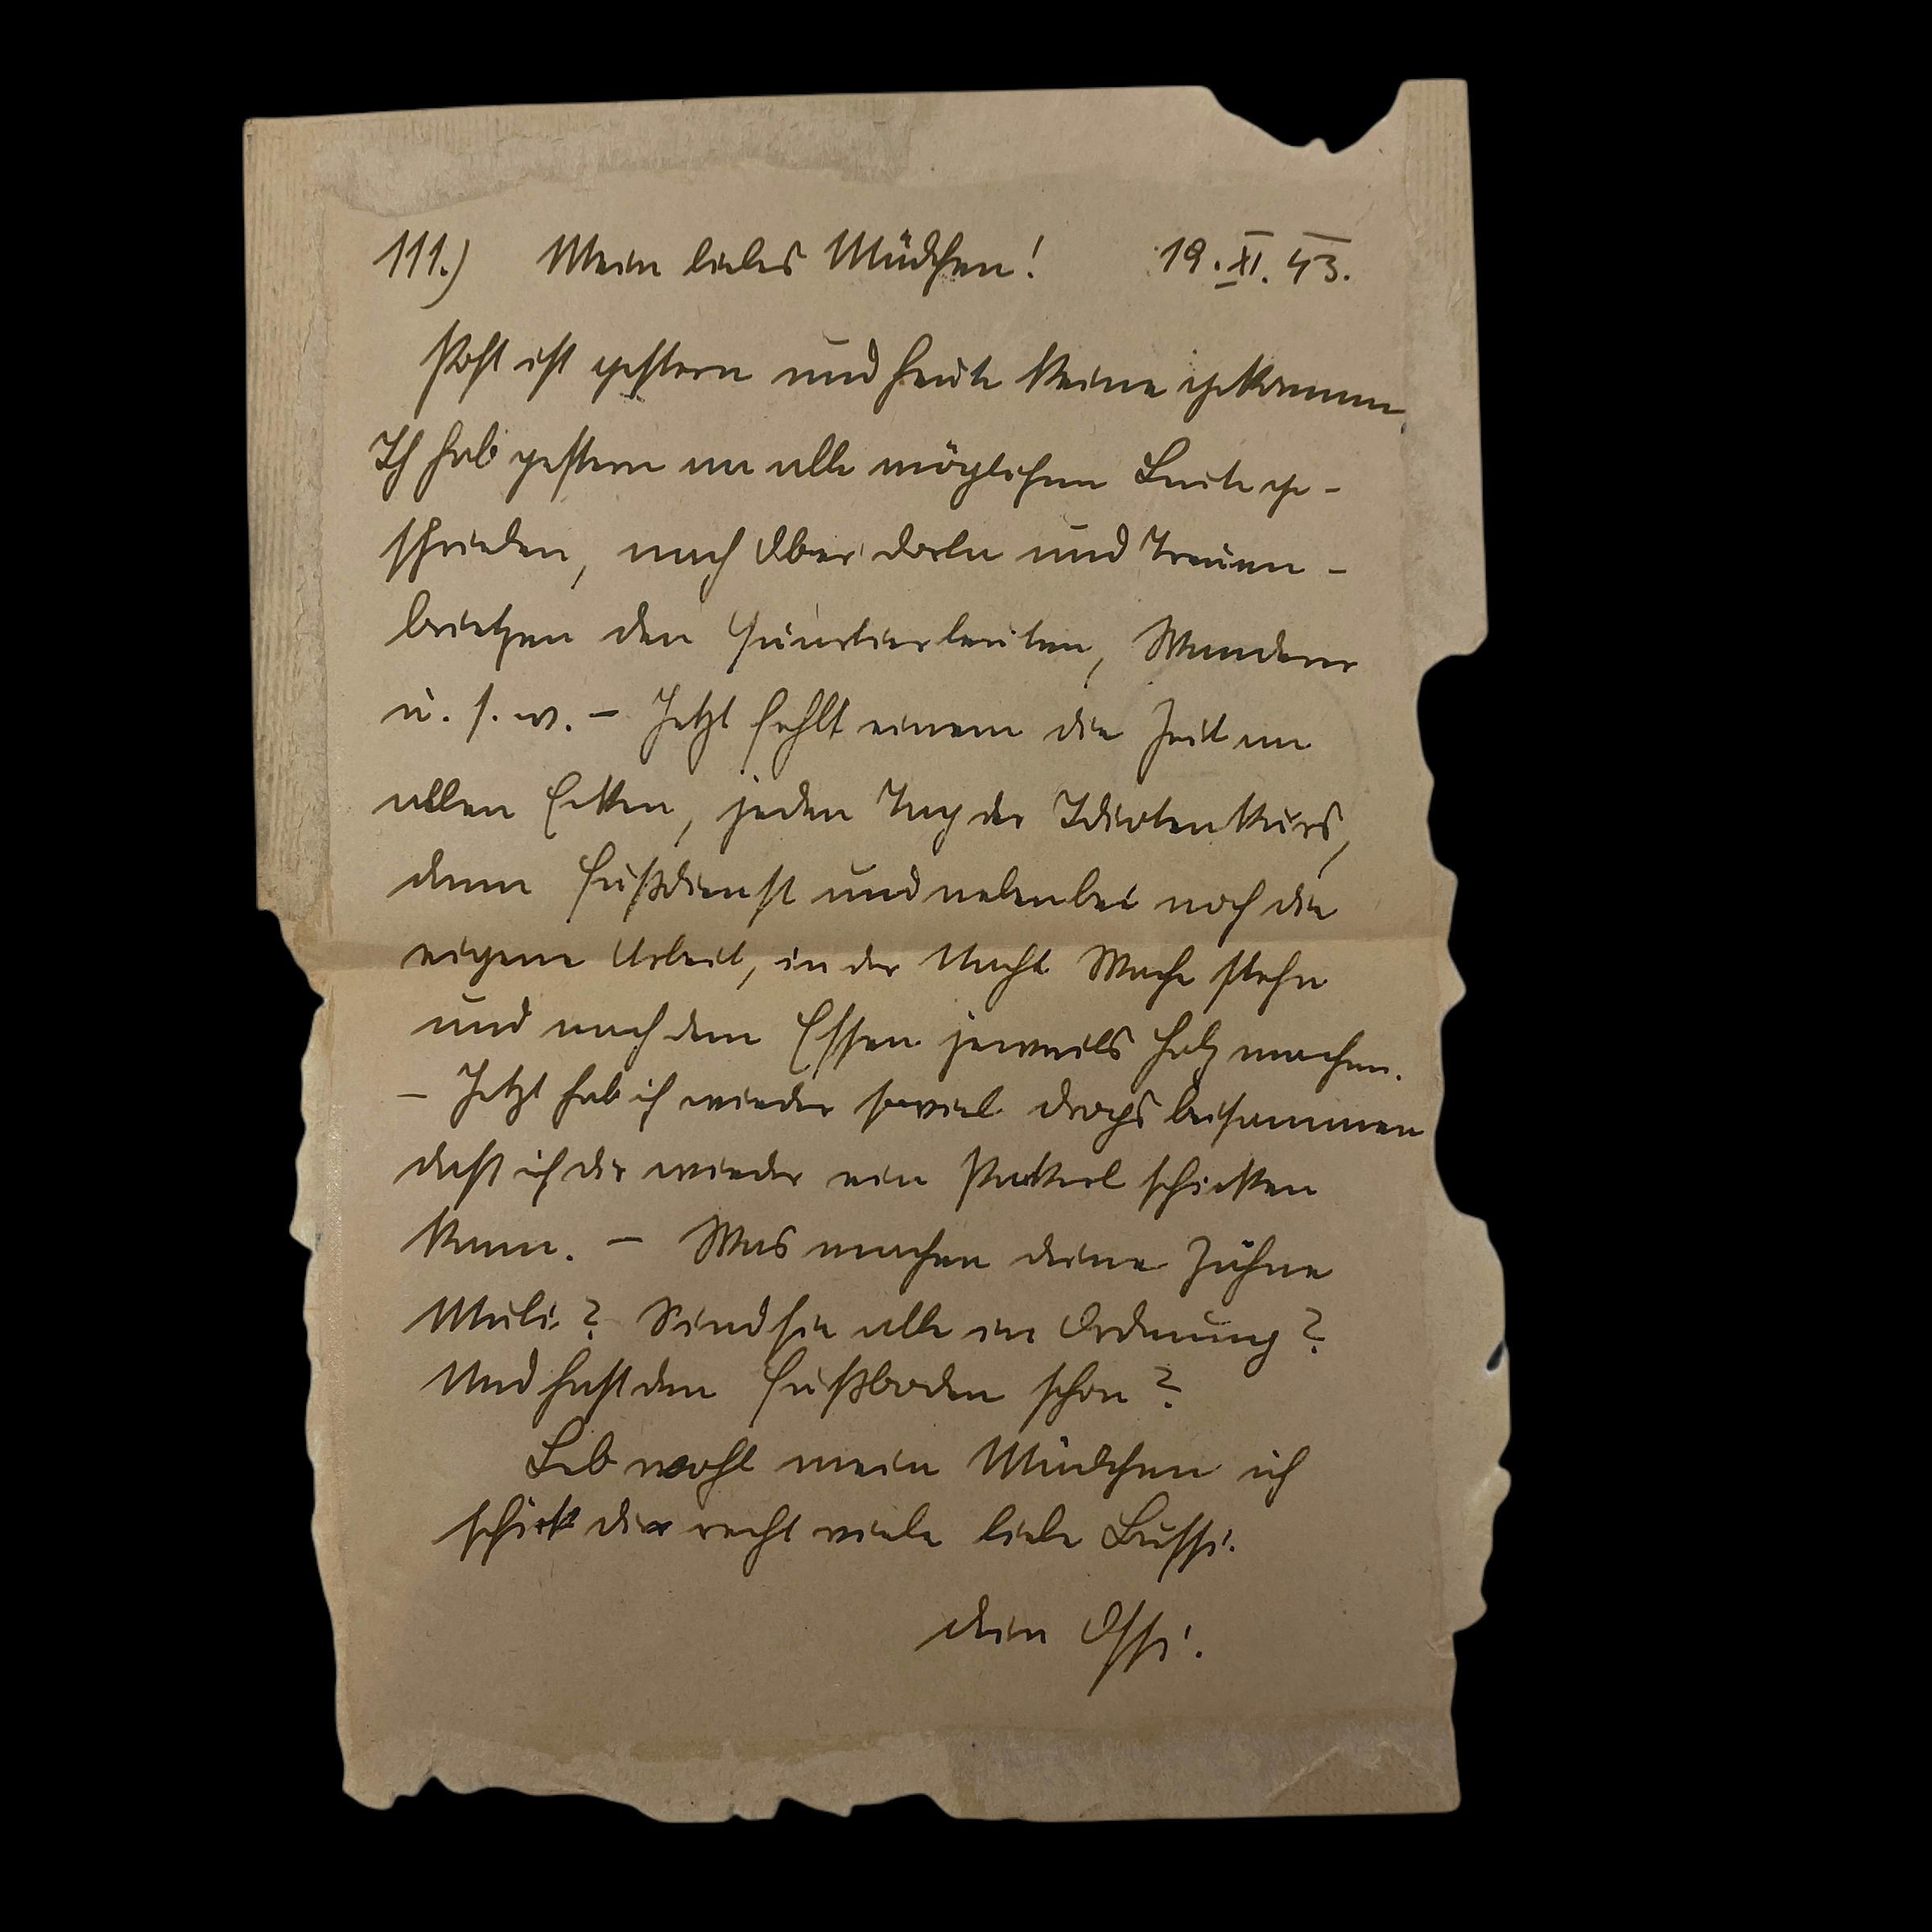 111.) Mein liebes Mädchen! 19.XI.43.
Post ist gestern und heute keine gekommen
Ich hab gestern an alle möglichen Leute ge-
schrieben, nach Oberdorla und Treuen-
brietzen den Quartierleuten, Wanderer
u. s. w. – Jetzt fehlt einem die Zeit an
allen Ecken, jeden Tag der Idiotenkurs,
dann Fußdienst und nebenbei noch die
eigene Arbeit, in der Nacht Wache stehn
und nach dem Essen jeweils Holz machen.
– Jetzt hab ich wieder soviel drops beisammen
dass ich dir wieder ein Packerl schicken
kann. – Was machen deine Zähne
Muli? Sind sie alle in Ordnung?
Und hast den Fußboden schon?
Leb wohl mein Mädchen ich
schick dir recht viele liebe Bussi.
dein Ossi.